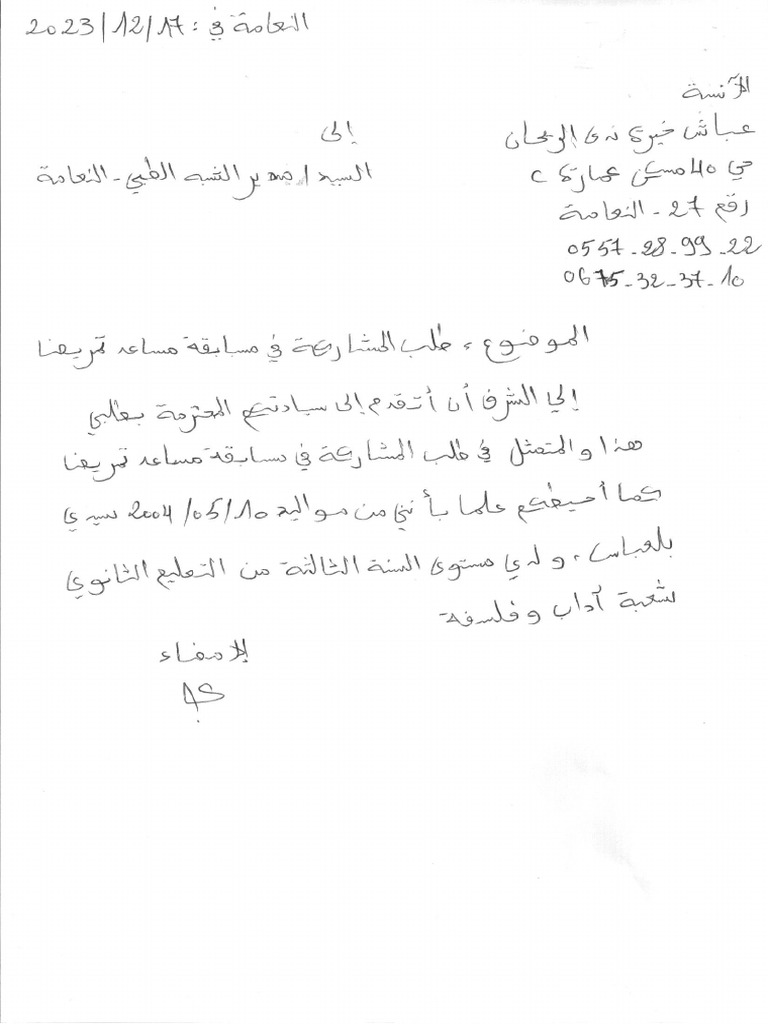 النعامة في : 2023/12/17
الآنسة
عباش خيرة ندى الريحان
إلى
حي 40 مسكن عمارة C
السيد / مدير الشبه الطبي - النعامة
رقم 27 - النعامة
0557-28-99-22
0675-32-37-10
الموضوع : طلب المشاركة في مسابقة مساعد تمريض
إلي الشرف أن أتقدم إلى سيادتكم المحترمة بطلبي
هذا والمتمثل في طلب المشاركة في مسابقة مساعد تمريض
كما أحيطكم علما بأنني من مواليد 2004/05/10 سيدي
بلعباس، ولدي مستوى السنة الثالثة من التعليم الثانوي
شعبة آداب وفلسفة
الإمضاء